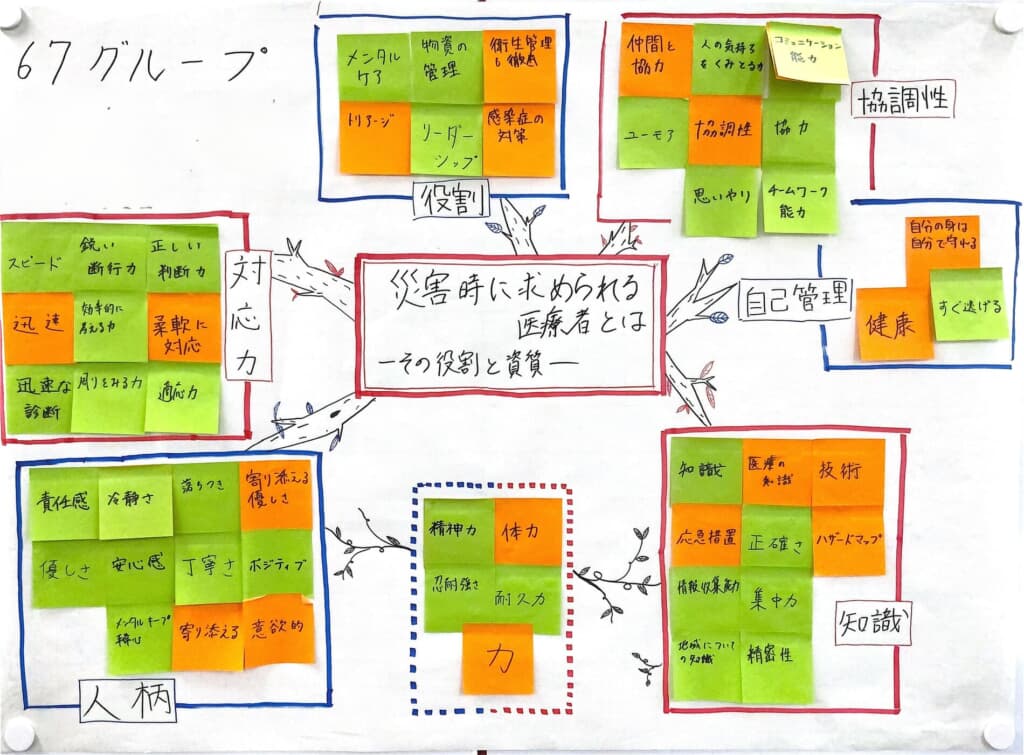 67グループ
メンタル
ケア
物資の
管理
衛生管理
も徹底
トリアージ
リーダー
シップ
感染症の
対策
役割
仲間と
協力
人の気持ち
をくみとる力
コミュニケーション
能力
ユーモア
協調性
協力
思いやり
チームワーク
能力
協調性
スピード
鋭い
断行力
正しい
判断力
迅速
効率的に
考える力
柔軟に
対応
迅速な
診断
周りをみる力
適応力
対応力
災害時に求められる
医療者とは
―その役割と資質―
自己管理
自分の身は
自分で守れる
健康
すぐ逃げる
責任感
冷静さ
落ちつき
寄り添える
優しさ
優しさ
安心感
丁寧さ
ポジティブ
メンタルキープ
寄り添える
意欲的
人柄
精神力
体力
忍耐強さ
耐久力
力
知識
医療の
知識
技術
応急措置
正確さ
ハザードマップ
情報収集能力
集中力
地域について
の知識
精密性
知識